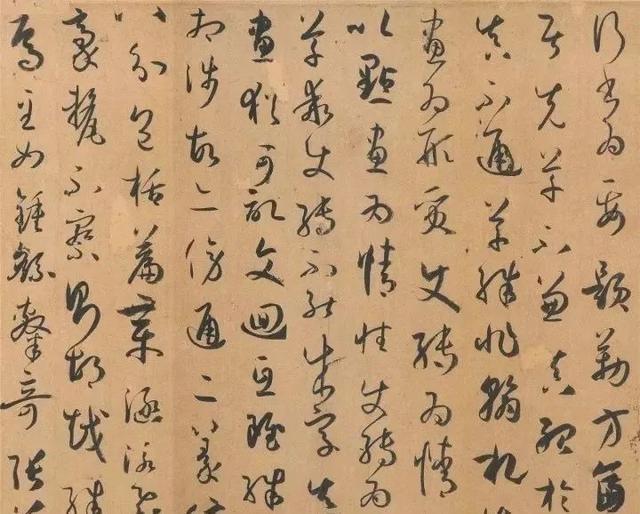 行書為要題勒方畐
居先草不兼真殆於
真不通草殊非翰札
畫為形質使轉為情
以點畫為情性使轉為
草乖使轉不能成字真
畫猶可記文迴互雖殊
相涉故亦傍通二篆俯
八分包括篇章涵泳飛
豪釐不察則胡越殊
焉至如鍾繇隸奇張